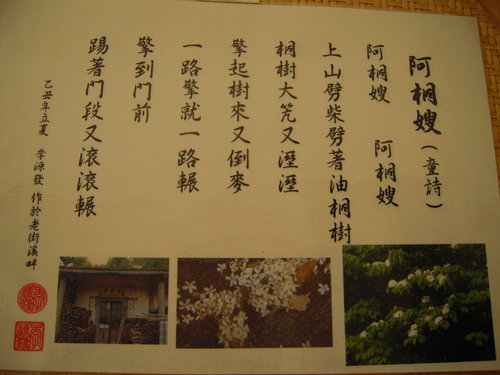 阿桐嫂（童詩）
阿桐嫂 阿桐嫂
上山劈柴劈著油桐樹
桐樹大笐又溼溼
擎起樹來又倒麥
一路擎就一路輾
擎到門前
踢著門段又滾滾輾
乙丑年立夏 李源發 作於老街溪畔